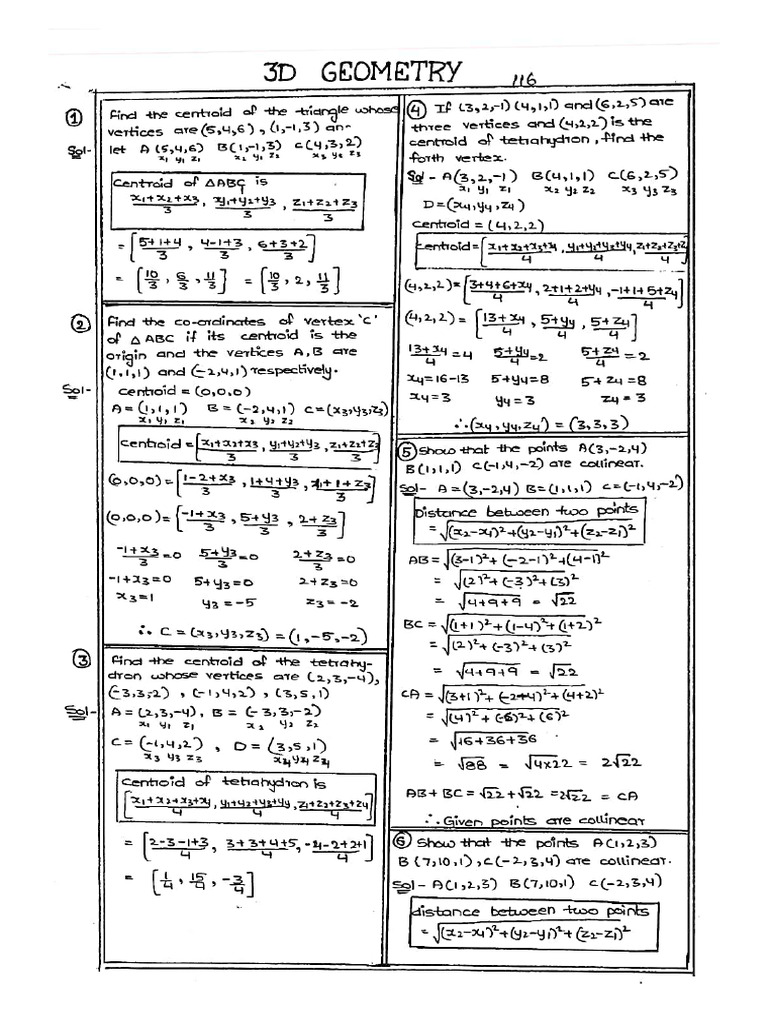 3D GEOMETRY 116
① Find the centroid of the triangle whose
vertices are (5,4,6) , (1,-1,3) an-
Sol- let A(5,4,6) B(1,-1,3) C(4,3,2)
x1 y1 z1 x2 y2 z2 x3 y3 z3
Centroid of △ABC is
x1+x2+x3/3 , y1+y2+y3/3 , z1+z2+z3/3
= [5+1+4/3 , 4-1+3/3 , 6+3+2/3]
= [10/3 , 6/3 , 11/3] = [10/3 , 2 , 11/3]
② Find the co-ordinates of vertex 'C'
of △ABC if its centroid is the
origin and the vertices A,B are
(1,1,1) and (-2,4,1) respectively.
Sol- centroid = (0,0,0)
A = (1,1,1) B = (-2,4,1) C = (x3,y3,z3)
x1 y1 z1 x2 y2 z2
Centroid = [x1+x2+x3/3 , y1+y2+y3/3 , z1+z2+z3/3]
(0,0,0) = [1-2+x3/3 , 1+4+y3/3 , 1+1+z3/3]
(0,0,0) = [-1+x3/3 , 5+y3/3 , 2+z3/3]
-1+x3/3 = 0 5+y3/3 = 0 2+z3/3 = 0
-1+x3=0 5+y3=0 2+z3=0
x3=1 y3 = -5 z3 = -2
∴ C = (x3,y3,z3) = (1,-5,-2)
③ Find the centroid of the tetrahy-
dron whose vertices are (2,3,-4),
(-3,3,-2) , (-1,4,2) , (3,5,1)
Sol- A = (2,3,-4) , B = (-3,3,-2)
x1 y1 z1 x2 y2 z2
C = (-1,4,2) , D = (3,5,1)
x3 y3 z3 x4 y4 z4
Centroid of tetrahydron is
[x1+x2+x3+x4/4 , y1+y2+y3+y4/4 , z1+z2+z3+z4/4]
= [2-3-1+3/4 , 3+3+4+5/4 , -4-2+2+1/4]
= [1/4 , 15/4 , -3/4]
④ If (3,2,-1) (4,1,1) and (6,2,5) are
three vertices and (4,2,2) is the
centroid of tetrahydron, find the
forth vertex.
Sol - A(3,2,-1) B(4,1,1) C(6,2,5)
x1 y1 z1 x2 y2 z2 x3 y3 z3
D = (x4,y4,z4)
centroid = (4,2,2)
Centroid = [x1+x2+x3+x4/4 , y1+y2+y3+y4/4 , z1+z2+z3+z4/4]
(4,2,2) = [3+4+6+x4/4 , 2+1+2+y4/4 , -1+1+5+z4/4]
(4,2,2) = [13+x4/4 , 5+y4/4 , 5+z4/4]
13+x4/4 = 4 5+y4/4 = 2 5+z4/4 = 2
x4=16-13 5+y4=8 5+z4=8
x4=3 y4=3 z4=3
∴ (x4,y4,z4) = (3,3,3)
⑤ Show that the points A(3,-2,4)
B(1,1,1) C(-1,4,-2) are collinear.
Sol- A = (3,-2,4) B = (1,1,1) C = (-1,4,-2)
Distance between two points
= √(x2-x1)²+(y2-y1)²+(z2-z1)²
AB = √(3-1)²+(-2-1)²+(4-1)²
= √(2)²+(-3)²+(3)²
= √4+9+9 = √22
BC = √(1+1)²+(1-4)²+(1+2)²
= √(2)²+(-3)²+(3)²
= √4+9+9 = √22
CA = √(3+1)²+(-2-4)²+(4+2)²
= √(4)²+(-6)²+(6)²
= √16+36+36
= √88 = √4×22 = 2√22
AB+BC = √22+√22 = 2√22 = CA
∴ Given points are collinear
⑥ Show that the points A(1,2,3)
B(7,10,1) , C(-2,3,4) are collinear.
Sol - A(1,2,3) B(7,10,1) C(-2,3,4)
distance between two points
= √(x2-x1)²+(y2-y1)²+(z2-z1)²